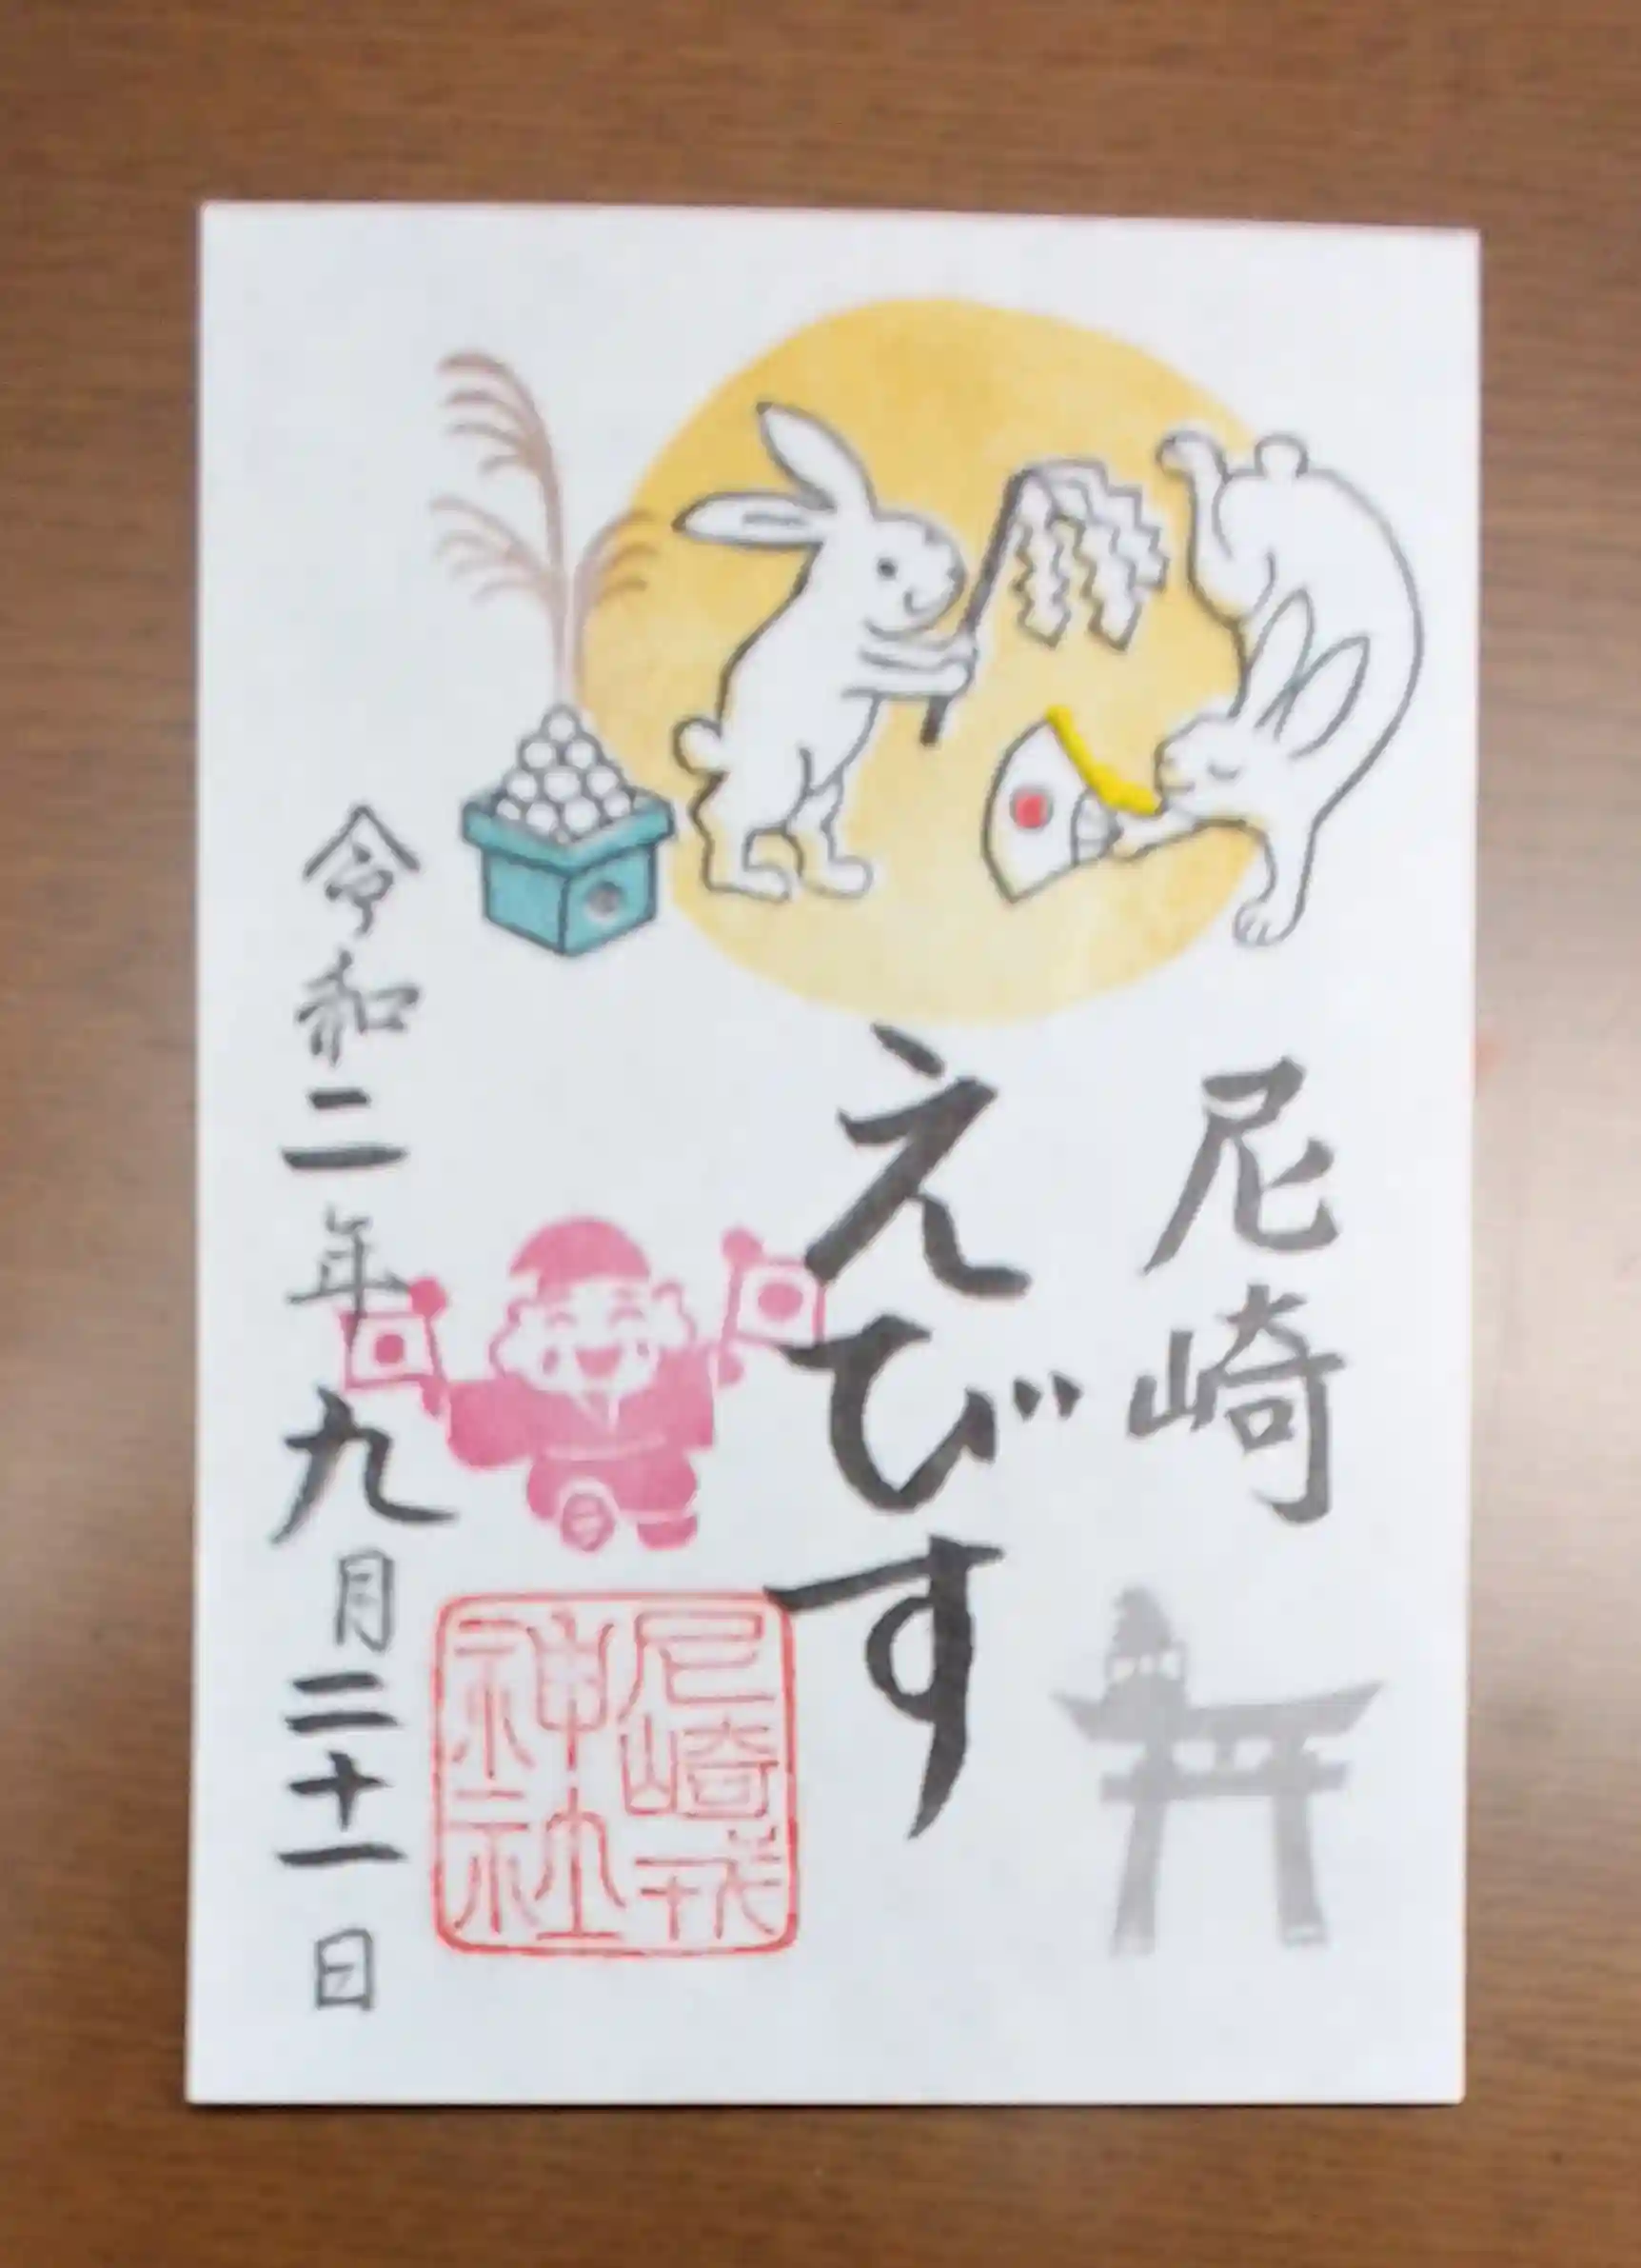 尼崎
えびす
尼崎戎
神社
令和二年九月二十一日